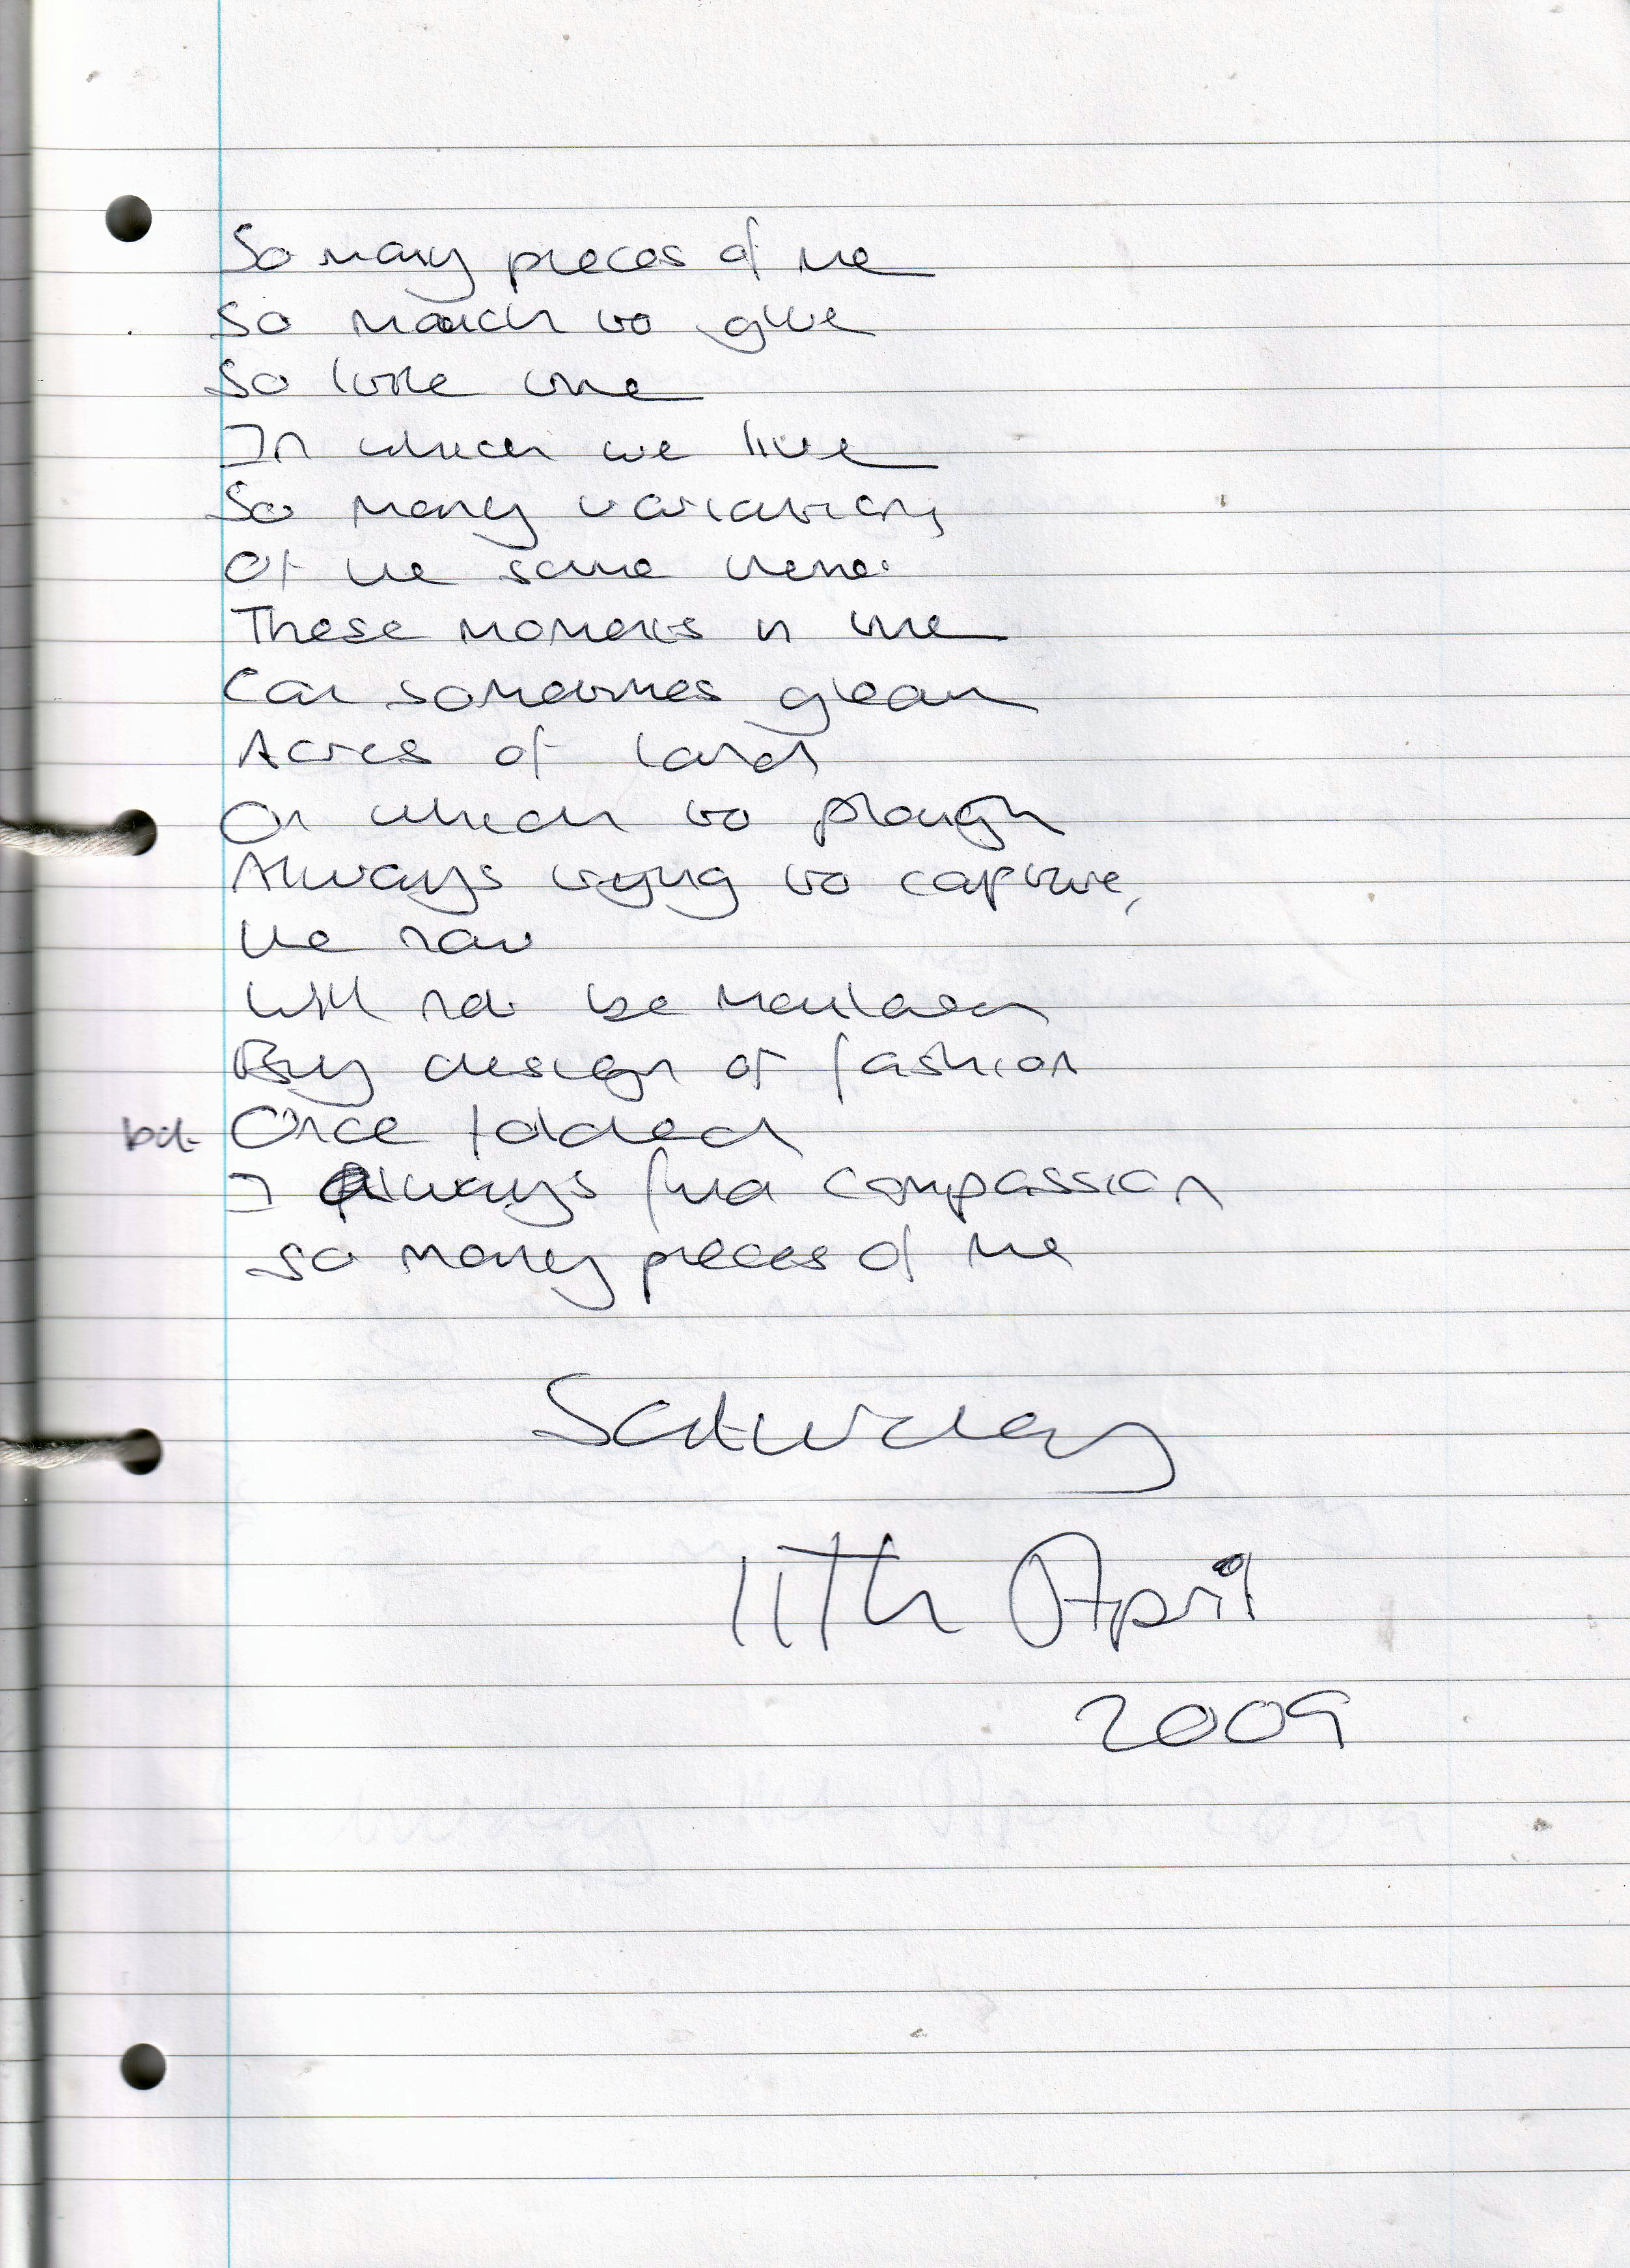 So many pieces of me
So much to give
So little time
In which we live
So many variations
Of the same theme
These moments in time
Can sometimes glean
Acres of land
On which to plough
Always trying to capture,
the now
Will not be
By design or fashion
but Once
I Always find compassion
So many pieces of me
Saturday
11th April
2009